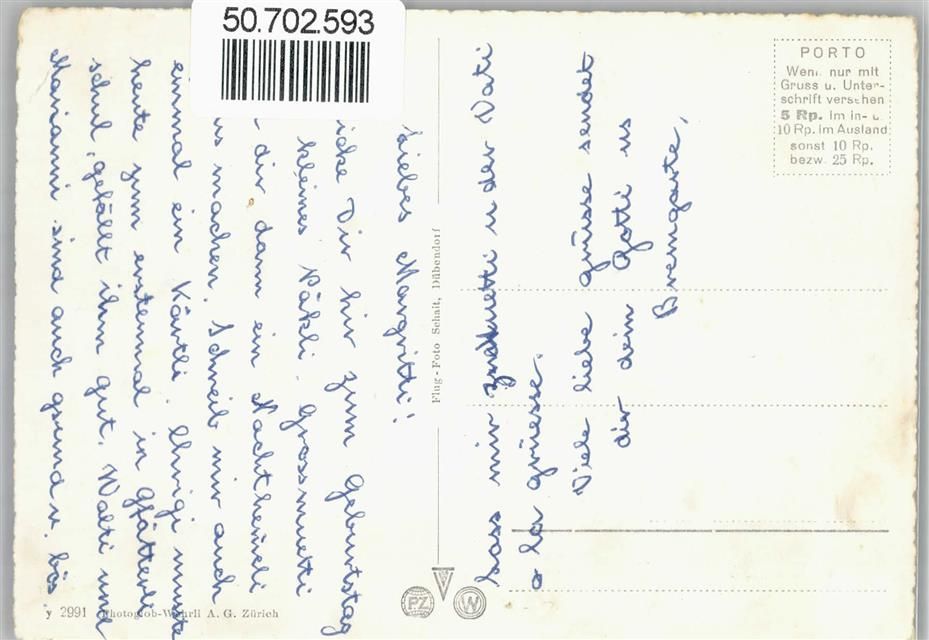 50.702.593
PORTO
Wenn nur mit
Gruss u. Unter-
schrift versehen
5 Rp. im In- u.
10 Rp. im Ausland
sonst 10 Rp.
bezw. 25 Rp.
Liebes Margritti!
icke Dir hir zum Geburtstag
kleines Päkli. Grossmuetti
dir dann ein Nachtheueli
us machen. Schreib mir auch
einmal ein Kärtli. Ihrigi musste
heute zum erstenmal in Gfätterli
schul, gefällt ihm gut. Walti und
Mariann sind auch gsund u. bös
Lass mir u der Vati
o la grüesse.
Viele liebe grüsse sendet
dir dein Gotti us
Bremgarte.
Flug-Foto Schait, Dübendorf
y 2991 Photoglob-Wehrli A. G. Zürich
PZ
W